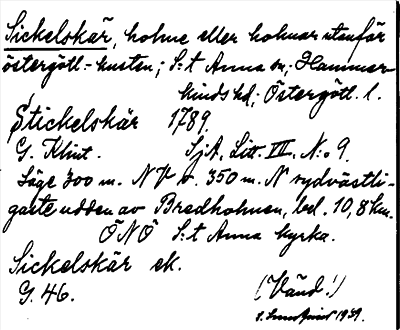 Sickelskär, holme eller holmar utanför
östergötl.-kusten; S:t Anna sn; Hammar-
kinds hd; Östergötl. l.
Stickelskär 1789.
G. Klint. SjA, Litt. III, N:o 9.
Läge 300 m. NV o. 350 m. N sydvästli-
gaste udden av Bredholmen, bel. 10,8 km.
ÖNÖ S:t Anna kyrka.
Sickelskär ek.
G. 46. (Vänd!)
1939.